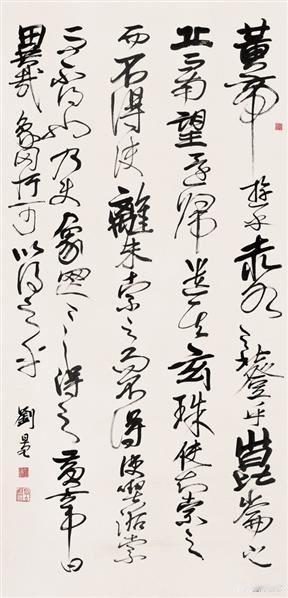 黃帝遊乎赤水之北登乎崑崙之
丘而南望還歸遺其玄珠使知索之
而不得使離朱索之而不得使喫詬索
之而不得也乃使象罔〻〻得之黃帝曰
異哉象罔乃可以得之乎
劉